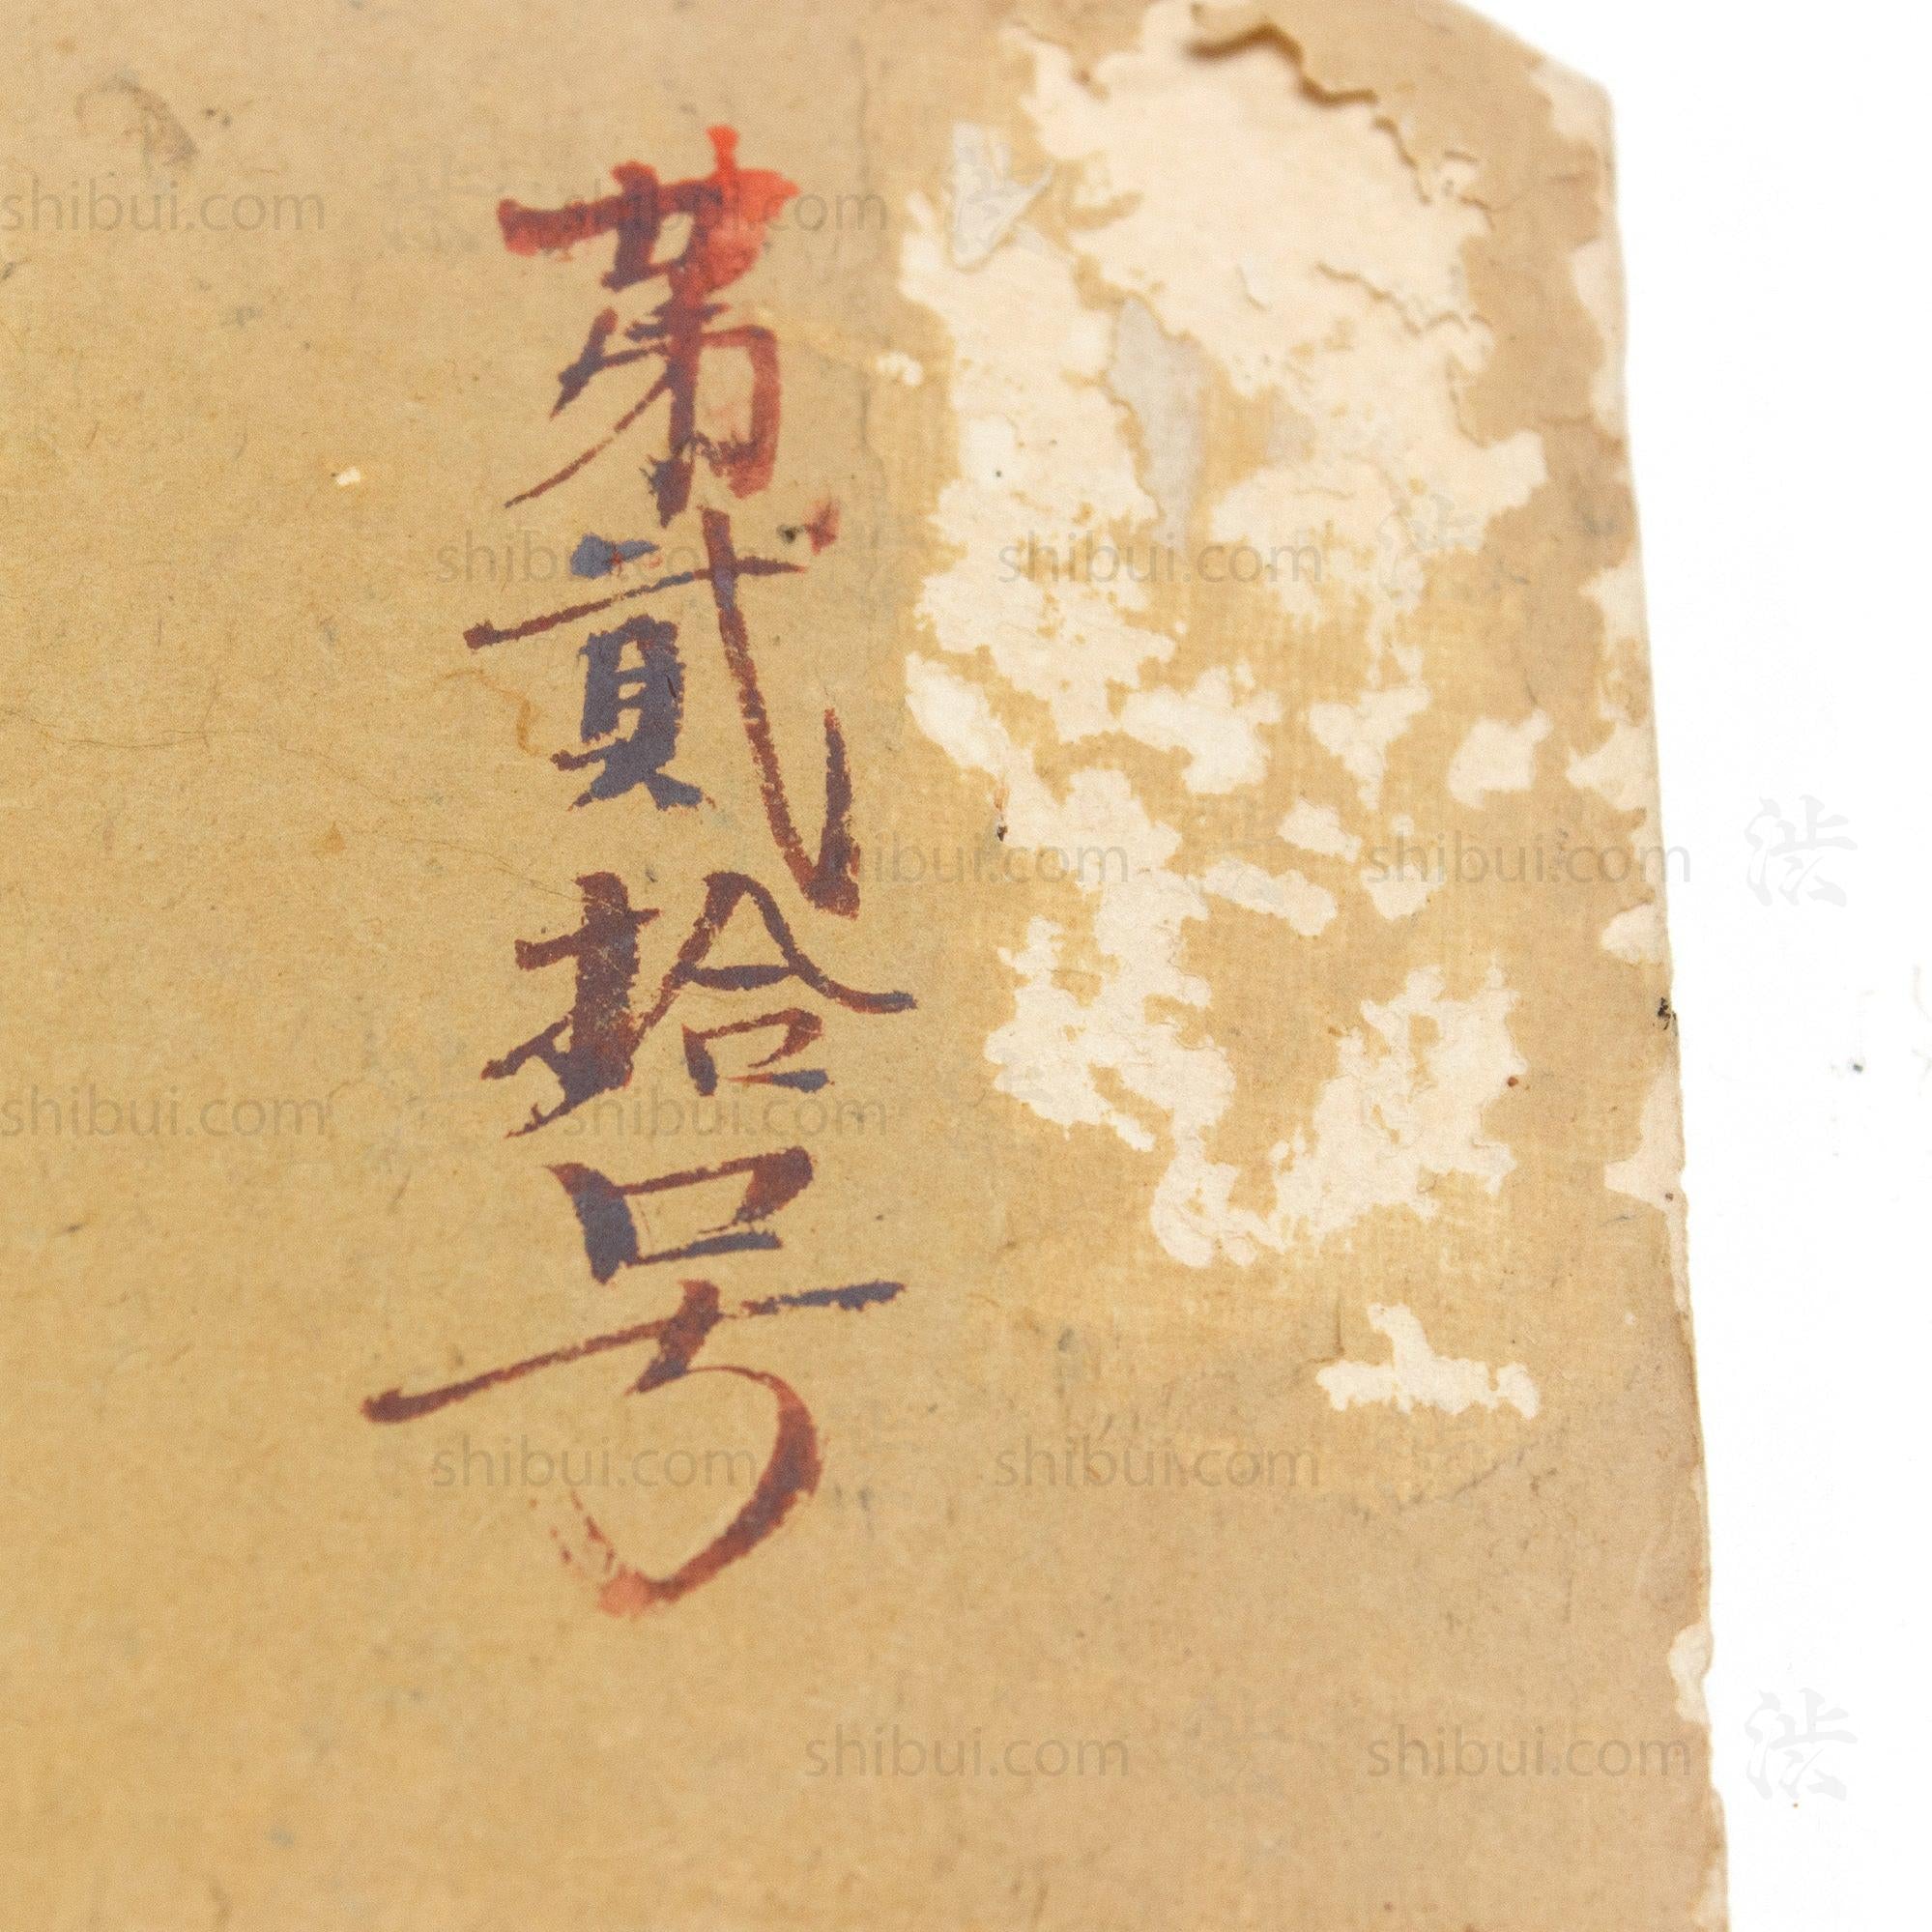 第貮拾号
shibui.com shibui.com
shibui.com shibui.com
shibui.com shibui.com
shibui.com shibui.com
shibui.com shibui.com
shibui.com shibui.com
渋
渋